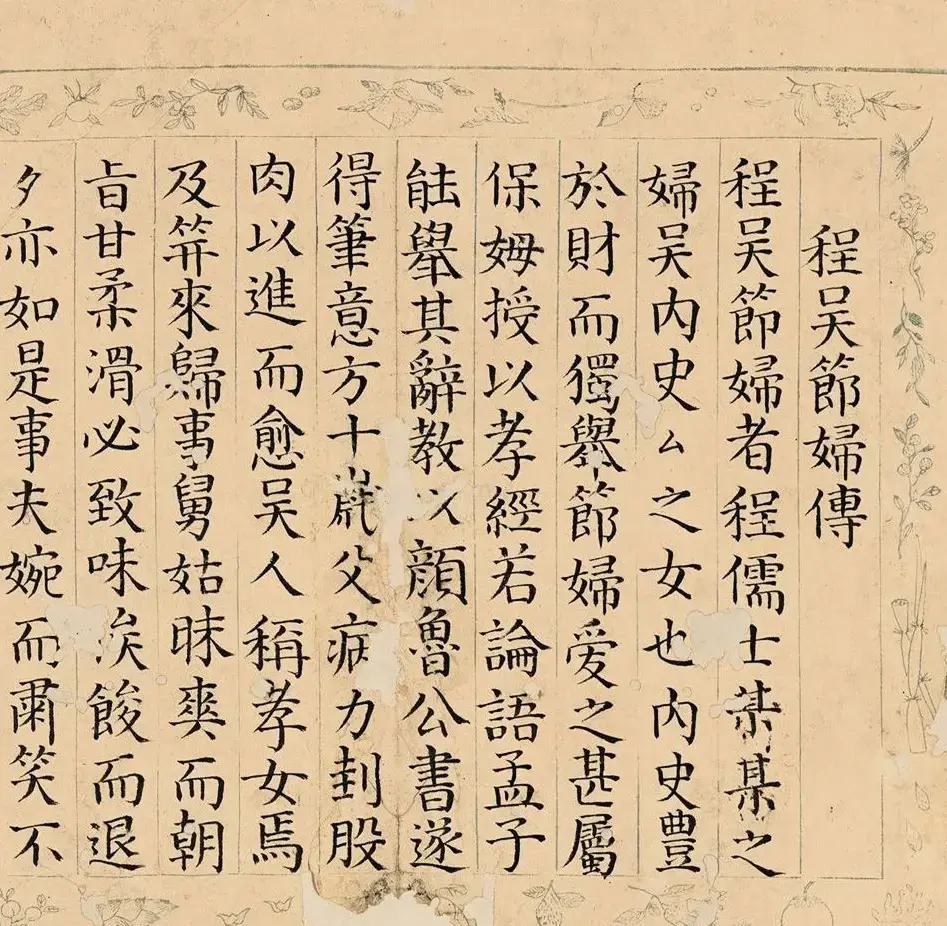 程吴節婦傳
程吴節婦者程儒士某某之
婦吴内史厶之女也内史豊
於財而獨舉節婦爱之甚屬
保姆授以孝經若論語孟子
能舉其辭教以顔魯公書遂
得筆意方十歳父病力刲股
肉以進而愈吴人稱孝女焉
及笄來歸事舅姑昧爽而朝
旨甘柔滑必致味俟餕而退
夕亦如是事夫婉而肅笑不